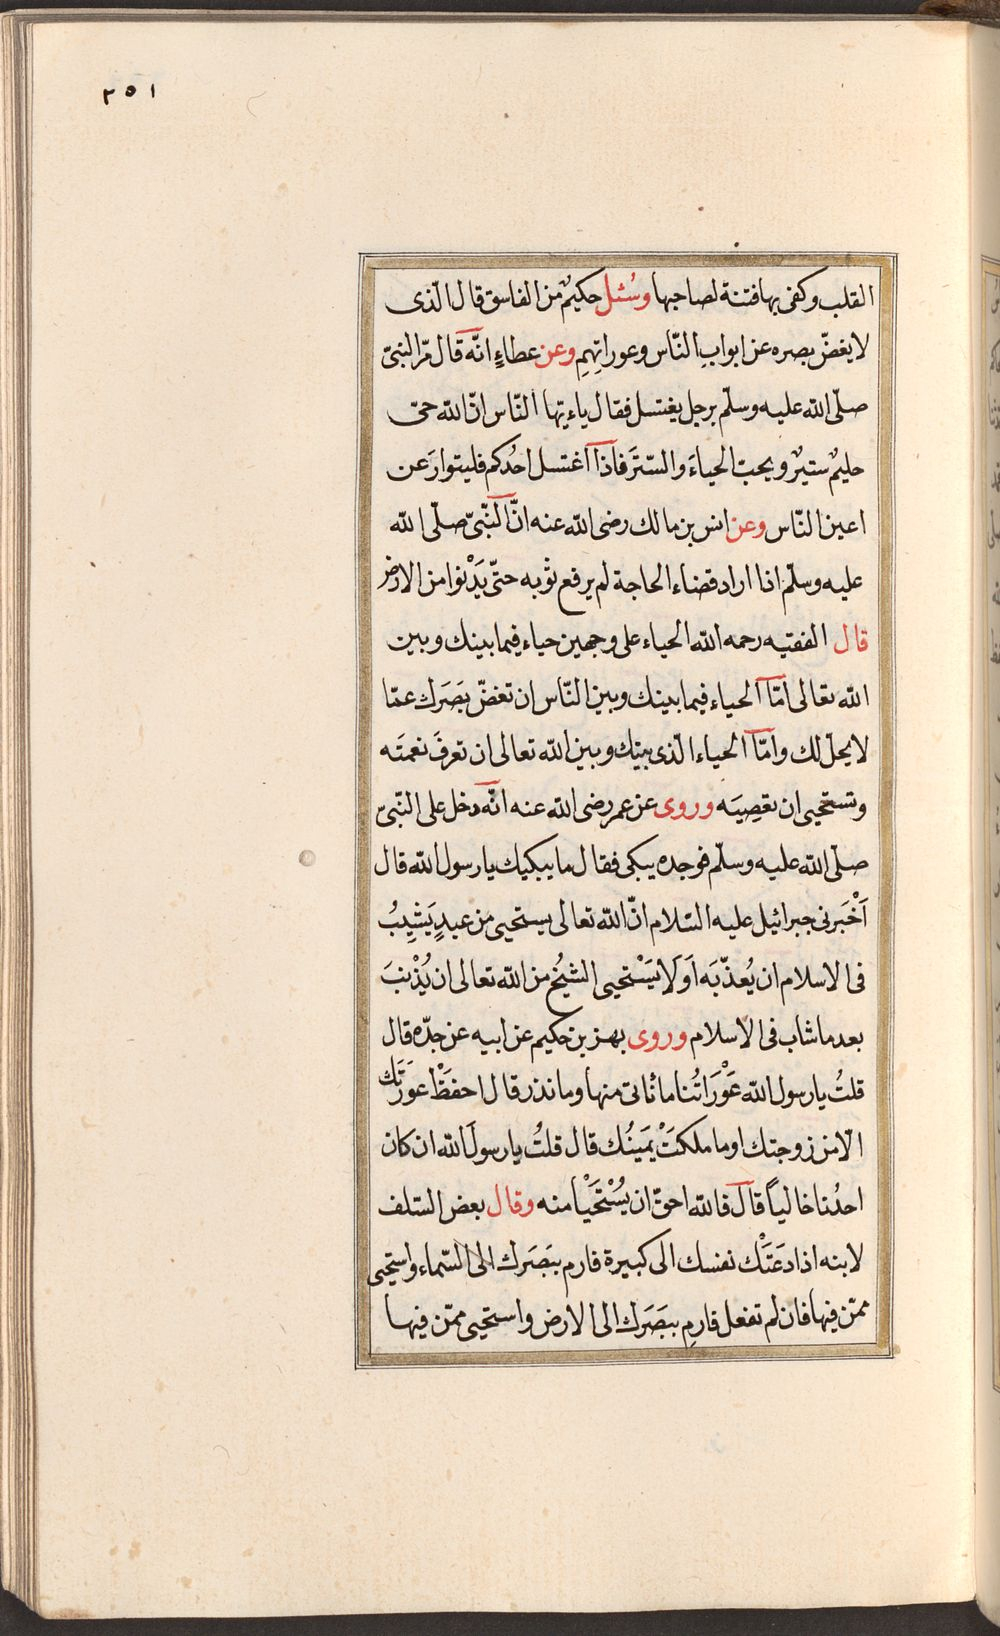 ٢٥١
القلب وكفى بها فتنة لصاحبها وسُئل حكيمٌ من الفاسق قال الّذى
لا يغضّ بصره عن ابوابِ النّاس وعوراتِهِم وعن عطاءٍ انّه قال مرّ النبىّ
صلّى اللّه عليه وسلّم برجل يغتسل فقال ياءيّها النّاس انّ اللّه حىّ
حليمٌ ستيرٌ ويحبّ الحياءَ والسّترَ فاذا اغتسل احُدكم فليتوارَ عن
اعين النّاس وعن انس بن مالك رضى اللّه عنه انّ النّبىّ صلّى اللّه
عليه وسلّم اذا اراد قضاء الحاجة لم يرفع ثوبه حتّى يَدْنوا من الارض
قال الفقيه رحمه اللّه الحياء على وجهين حياء فيما بينك وبين
اللّه تعالى امّا الحياء فيما بينك وبين النّاس ان تغضّ بَصَرك عمّا
لا يحلّ لك وامّا الحياء الّذى بينك وبين اللّه تعالى ان تعرفَ نعمَته
وتستحيى ان تعصِيَه وروى عن عمر رضى اللّه عنه انّه دخل على النّبىّ
صلّى اللّه عليه وسلّم فوجده يبكى فقال ما يبكيك يا رسول اللّه قال
اَخْبَرنى جبرائيل عليه السّلام انّ اللّه تعالى يستحيى من عبدٍ يَشِيبُ
فى الاسلام ان يُعذّبَه اَوَلا يَسْتحيى الشيخُ من اللّه تعالى ان يُذْنبَ
بعد ما شاب فى الاسلام وروى بهز بن حكيم عن ابيه عن جدّه قال
قلتُ يا رسول اللّه عَوْرَاتُنا ما نأتى منها وما نذر قال احفَظْ عَوْرَتَك
الّا من زوجتك او ما ملكتَ يمَينُك قال قلتُ يا رسولَ اللّه ان كان
احدُنا خالياً قال فاللّه احقّ ان يُسْتَحْيا منه وقال بعض السّلف
لابنه اذا دعَتْك نفسك الى كبيرة فارم ببَصَرك الى السّماء واستحيى
ممّن فيها فان لم تفعل فارمِ ببَصَرك الى الارض واستحيى ممّن فيها